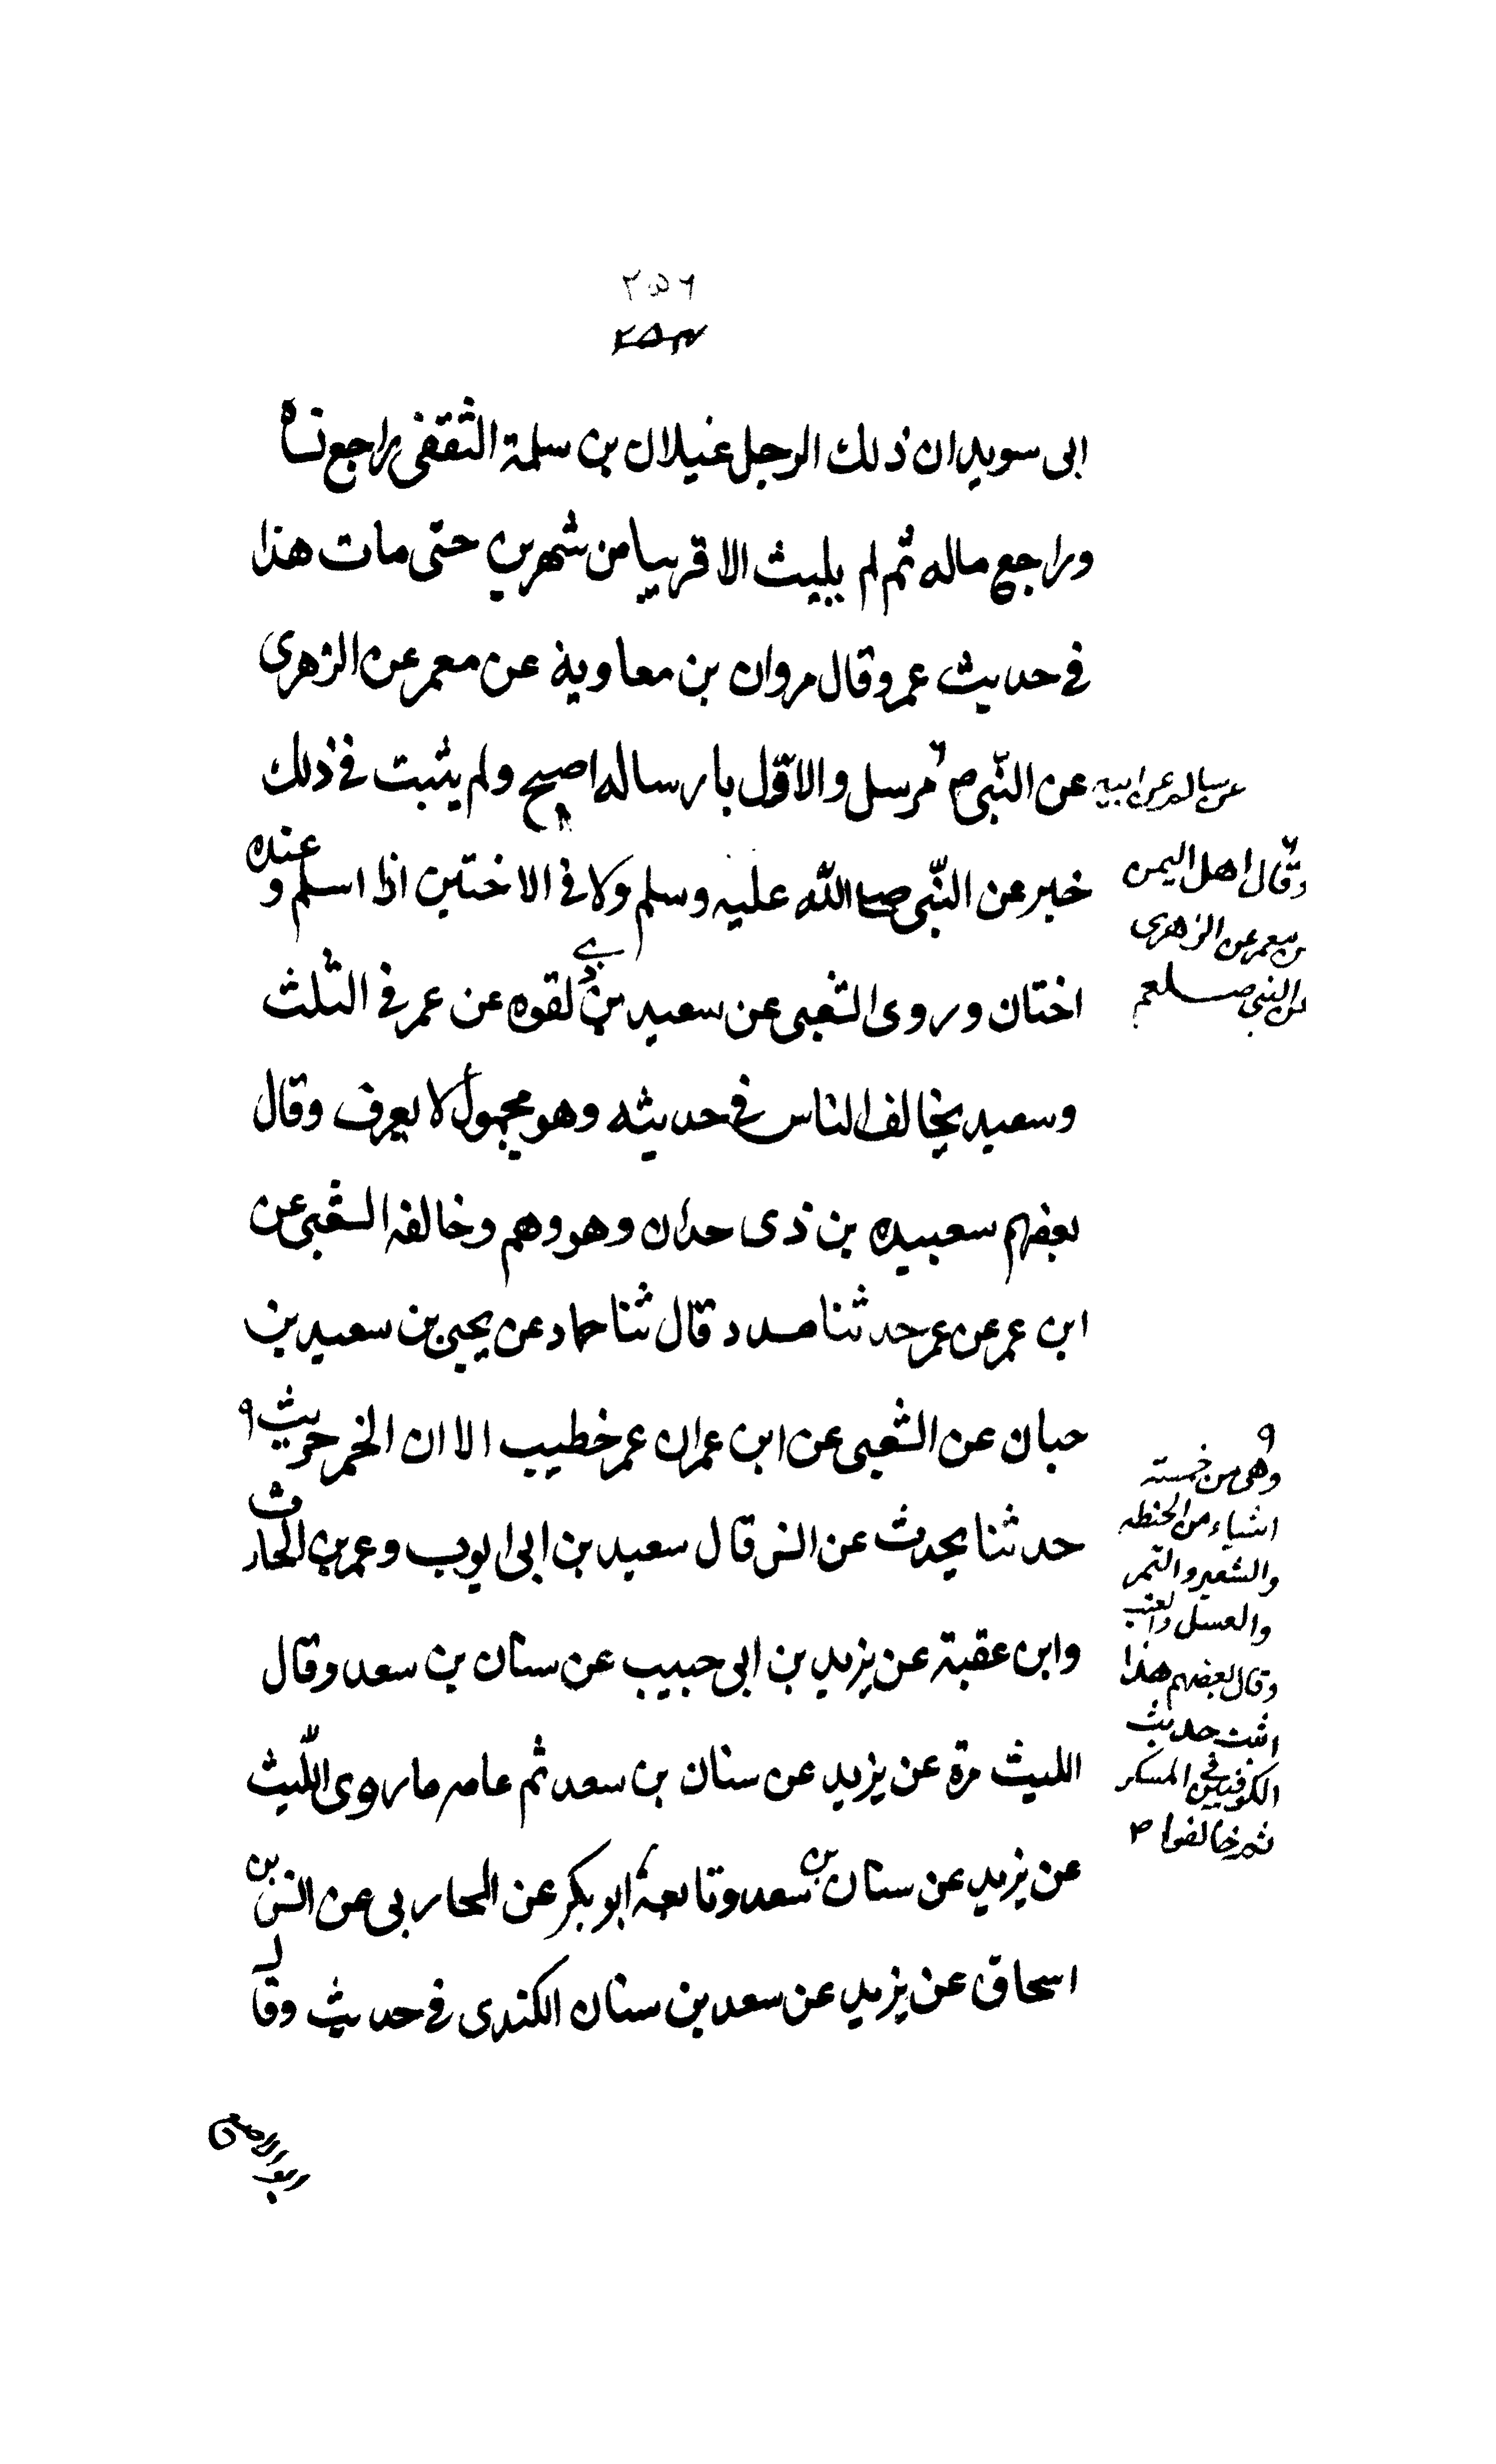 ٢٥٦
٢٥٣
ابى سويد ان ذلك الرجل غيلان بن سلمة الثقفى راجع نساه
وراجع ماله ثم لم يلبث الا قريبا من شهرين حتى مات هذا
فى حديث عمر وقال مروان بن معاوية عن معمر عن الزهرى
عن سالم عن ابيه عن النّبى ص مرسل والاوّل بارساله اصح ولم يثبت فى ذلك
خبر عن النّبى صلى الله عليه وسلم ولا فى الاختين اذا اسلم وعنده
اختان وروى الشعبى عن سعيد بن ذى لقوه عن عمر فى الثلث
وسعيد يخالف الناس فى حديثه وهو مجهول لا يعرف وقال
بعضهم سعبيده بن ذى حدان وهو وهم وخالفه الشعبى عن
ابن عمر عن عمر حدثنا مسدد قال ثنا حماد عن يحيى بن سعيد بن
حبان عن الشعبى عن ابن عمر ان عمر خطيب الا ان الخمر حريث ٩
حدثنا يحدث عن انس قال سعيد بن ابى ايوب وعمر بن الحارث
وابن عقبة عن يزيد بن ابى حبيب عن سنان بن سعد وقال
الليث مرة عن يزيد عن سنان بن سعد ثم عامه ما روى اللّيث
عن يزيد عن سنان بن سعد وتابعه ابو بكر عن المحاربى عن انس بن
اسحاق عن يزيد عن سعد بن سنان الكندى فى حديث وقال
وقال اهل اليمن
عن معمر عن الزهرى
عن النبى صلعم
٩
وهى من خمسته
اشياء من الحنطه
والشعير والتمر
والعسل والعنب
وقال بعضهم هذا
اثبت حديث
الكوفيين فى المسكر
ثم خالفوا ٣